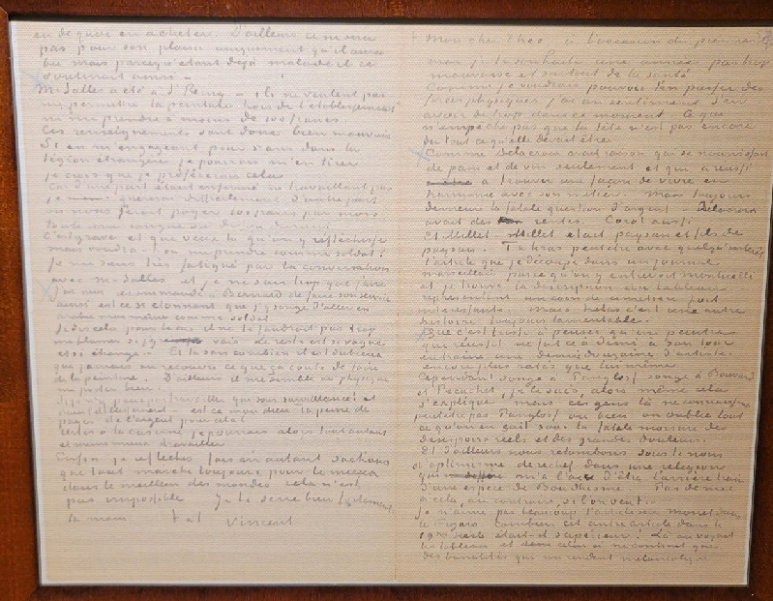 en de quoi en acheter. D'ailleurs ce n'est
pas pour son plaisir uniquement qu'il
mais parcequ'étant déjà malade et ce
ainsi
M. Salles a été à St Remy – ils ne veulent pas
me permettre la peinture hors de l'établissement
ni me prendre à moins de 100 francs.
Ces renseignements sont donc bien mauvais
Si en m'engageant pour 5 ans dans la
légion étrangère je pourrais m'en tirer
je crois que je préférerais cela.
Car d'une part étant enfermé ne travaillant pas
je guérirai difficilement d'autre part
on nous ferait payer 100 francs par mois
toute une longue vie de
C'est grave et que veux tu qu'on y réfléchisse
mais voudra t-on me prendre comme soldat?
Je me sens très fatigué par la conversation
avec M. Salles et je ne sais trop que faire
J'ai moi recommandé à Bernard de faire son service
aussi est ce si étonnant que je songe d'aller en
arabie moi même comme soldat
Je dis cela pour le cas il ne te faudrait pas trop
me blamer si j'y vais – Le reste est si vague
et si étrange. Et tu sais combien il est douteux
que jamais on recouvre ce que ça coûte de faire
de la peinture. D'ailleurs il me semble au physique
je me porte bien.
Si je n'y peux travailler que sous surveillance! et
dans l'établissement – est ce mon dieu la peine de
payer de l'argent pour cela!
certes à la caserne je pourrais alors tout autant
et même mieux travailler.
Enfin je réfléchis fais en autant sachons
que tout marche toujours pour le mieux
dans le meilleur des mondes cela n'est
pas impossible Je te serre bien fortement
la main. t. à t. Vincent
Mon cher Theo, à l'occasion du premier
mai je te souhaite une année pas trop
mauvaise et surtout de la santé
Comme je voudrais pouvoir t'en passer des
forces physiques j'ai un sentiment d'en
avoir de trop dans ce moment. Ce qui
n'empêche pas que la tête n'est pas encore
du tout ce qu'elle devrait être.
Comme Delacroix avait raison qui se nourrissait
de pain et de vin seulement et qui a réussi
à trouver une façon de vivre en
harmonie avec son métier. Mais toujours
demeure la fatale question d'argent – Delacroix
avait des rentes. Corot aussi
Et Millet – Millet était paysan et fils de
paysan. Tu liras peut être avec quelqu'intérêt
l'article que je découpe dans un journal
marseillais parce qu'on y entrevoit monticelli
et je trouve la description du tableau
représentant un coin de cimetière fort
intéressante. Mais hélas c'est une autre
histoire toujours lamentable.
Que c'est triste à penser qu'un peintre
qui réussit ne fut ce à demi à son tour
entraine une demi douzaine d'artistes
encore plus ratés que lui même
Cependant songe à Pangloss songe à Bouvard
et Pécuchet, je le sais alors même cela
s'explique mais ces gens là ne connaissent
peut être pas Pangloss ou bien on oublie tout
ce qu'on en sait sous la fatale morsure des
désespoirs réels et des grandes douleurs
Et d'ailleurs nous retombons sous le nom
d'optimisme derechef dans une religion
qui m'a l'air d'être l'arrière train
d'une espèce de Bouddhisme. Pas de mal
à cela, au contraire, si l'on veut.
Je n'aime pas beaucoup l'article sur Monet dans
le Figaro Combien cet autre article dans le
19me siècle était-il supérieur! Là on voyait
les tableaux et dans celui ci ne contient que
des banalités qui me rendent mélancolique